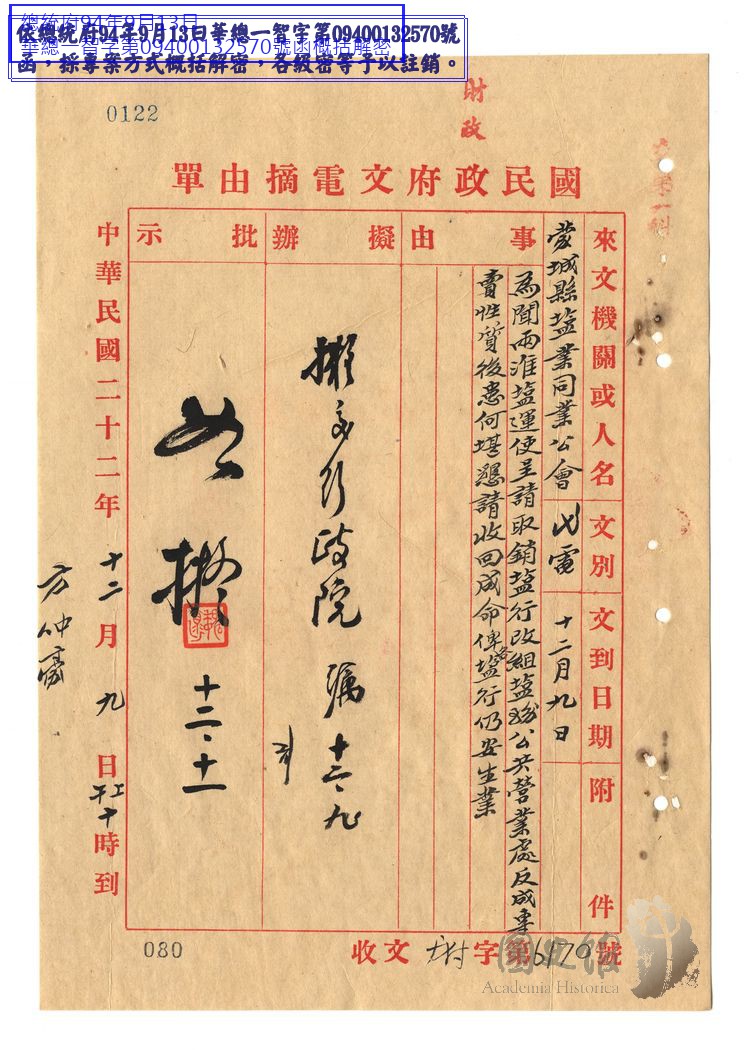 總統府94年9月13日
華總一智字第09400132570號函概括解密
依總統府94年9月13日華總一智字第09400132570號
函，採專案方式概括解密，各級密等予以註銷。
0122
財政
國民政府文電摘由單
來文機關或人名
蒙城縣塩業同業公會
文別
代電
文到日期
十二月九日
附件
事由
為聞兩淮塩運使呈請取銷塩行改組塩
公共營業處反成專
賣性質後患何堪懇請收回成命俾各塩行仍安生業
擬辦
擬交行政院
十二、九
批示
如擬
十二、十一
中華民國二十二年十二月九日上午十時到
收文
財字第6170號
080
國史館
Academia Historica